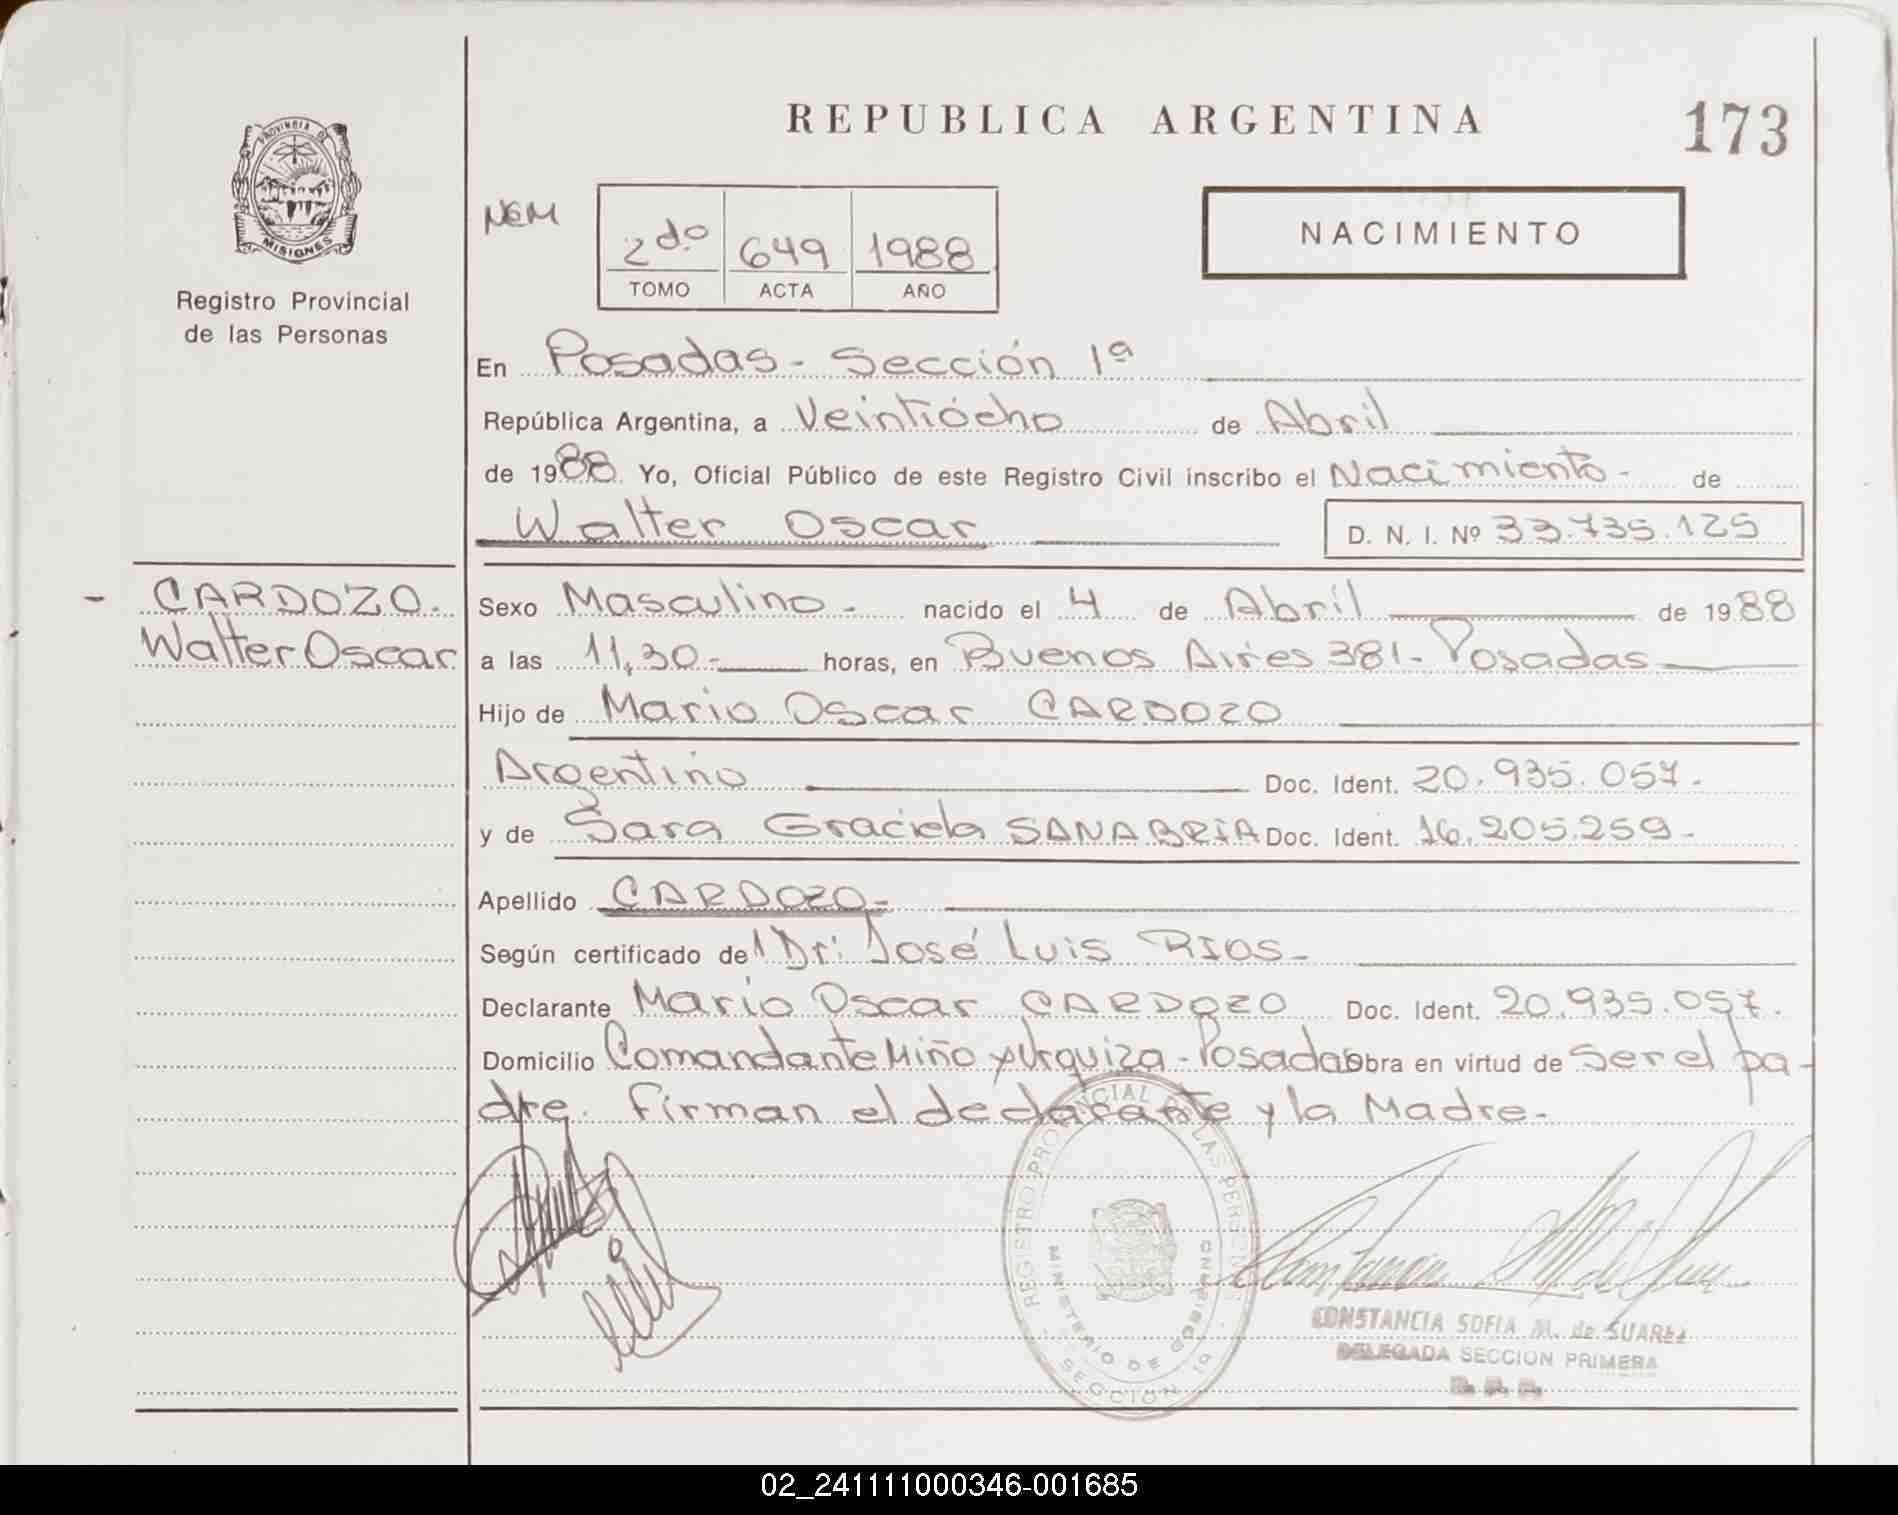 REPUBLICA ARGENTINA
173
PROVINCIA DE
MISIONES
Registro Provincial
de las Personas
NEM
2do 649 1988
TOMO ACTA AÑO
NACIMIENTO
En Posadas - Sección 1ª
República Argentina, a Veintiócho de Abril
de 1988 Yo, Oficial Público de este Registro Civil inscribo el Nacimiento - de
Walter Oscar D. N. I. Nº 33.735.125
- CARDOZO.
Walter Oscar
Sexo Masculino - nacido el 4 de Abril de 1988
a las 11,30 - horas, en Buenos Aires 381 - Posadas
Hijo de Mario Oscar CARDOZO
Argentino Doc. Ident. 20.935.057.
y de Sara Graciela SANABRIA Doc. Ident. 16.205.259 -
Apellido CARDOZO -
Según certificado del Dr: José Luis RIOS -
Declarante Mario Oscar CARDOZO Doc. Ident. 20.935.057.
Domicilio Comandante Miño y Urquiza - Posadas Obra en virtud de Ser el pa-
dre. Firman el declarante y la Madre -
REGISTRO PROVINCIAL DE LAS PERSONAS
MINISTERIO DE GOBIERNO
SECCIÓN 1a
CONSTANCIA SOFIA M. de SUAREZ
DELEGADA SECCION PRIMERA
02_241111000346-001685